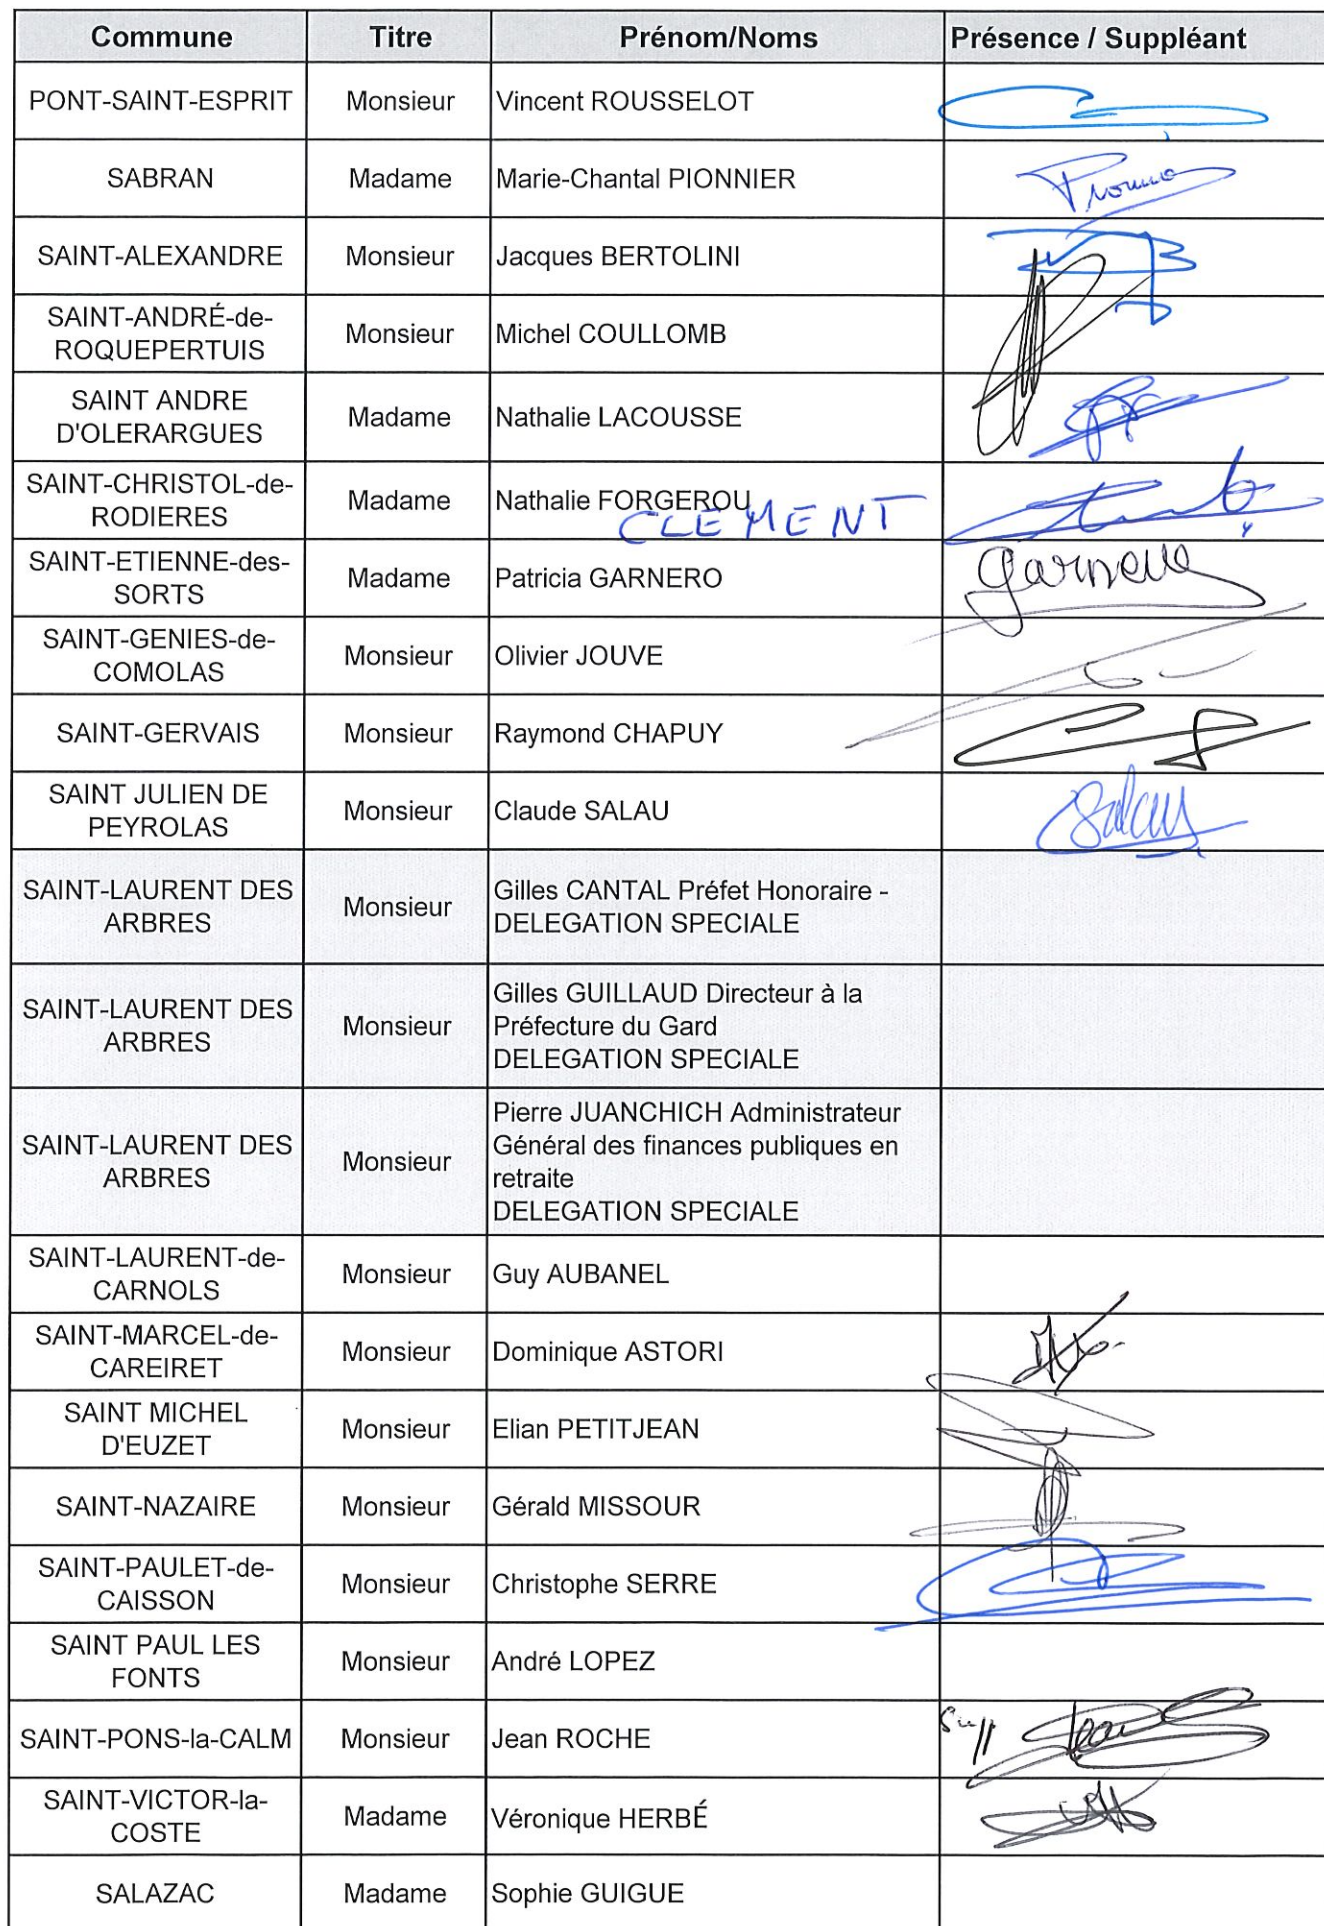 Commune Titre Prénom/Noms Présence / Suppléant
PONT-SAINT-ESPRIT Monsieur Vincent ROUSSELOT
SABRAN Madame Marie-Chantal PIONNIER
SAINT-ALEXANDRE Monsieur Jacques BERTOLINI
SAINT-ANDRÉ-de-
ROQUEPERTUIS Monsieur Michel COULLOMB
SAINT ANDRE
D'OLERARGUES Madame Nathalie LACOUSSE
SAINT-CHRISTOL-de-
RODIERES Madame Nathalie FORGEROU
CLEMENT
SAINT-ETIENNE-des-
SORTS Madame Patricia GARNERO
SAINT-GENIES-de-
COMOLAS Monsieur Olivier JOUVE
SAINT-GERVAIS Monsieur Raymond CHAPUY
SAINT JULIEN DE
PEYROLAS Monsieur Claude SALAU Salau
SAINT-LAURENT DES
ARBRES Monsieur Gilles CANTAL Préfet Honoraire -
DELEGATION SPECIALE
SAINT-LAURENT DES
ARBRES Monsieur Gilles GUILLAUD Directeur à la
Préfecture du Gard
DELEGATION SPECIALE
SAINT-LAURENT DES
ARBRES Monsieur Pierre JUANCHICH Administrateur
Général des finances publiques en
retraite
DELEGATION SPECIALE
SAINT-LAURENT-de-
CARNOLS Monsieur Guy AUBANEL
SAINT-MARCEL-de-
CAREIRET Monsieur Dominique ASTORI
SAINT MICHEL
D'EUZET Monsieur Elian PETITJEAN
SAINT-NAZAIRE Monsieur Gérald MISSOUR
SAINT-PAULET-de-
CAISSON Monsieur Christophe SERRE
SAINT PAUL LES
FONTS Monsieur André LOPEZ
SAINT-PONS-la-CALM Monsieur Jean ROCHE Supp
SAINT-VICTOR-la-
COSTE Madame Véronique HERBÉ
SALAZAC Madame Sophie GUIGUE